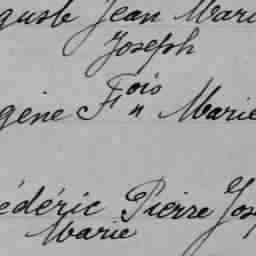 guste Jean Marie
Joseph
gène Fois " Marie
édéric Pierre Jos
Marie